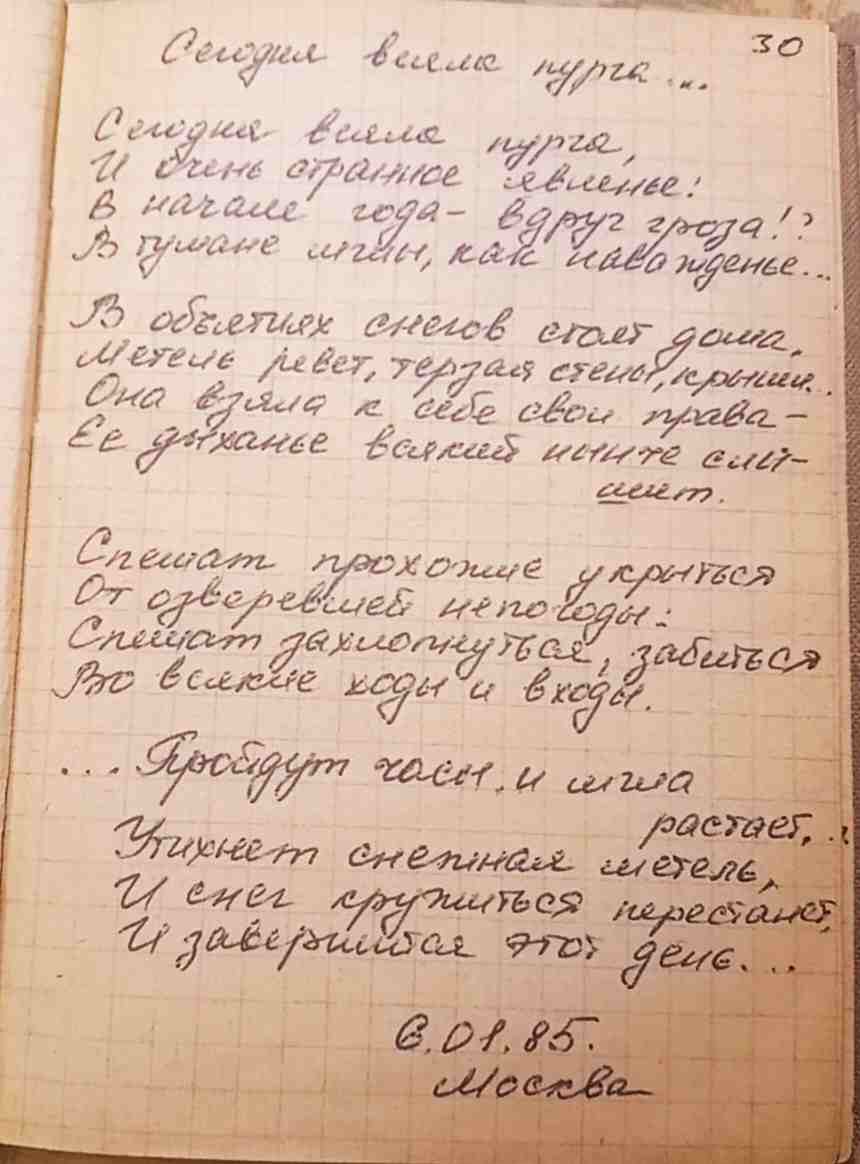 30
Сегодня веяла пурга...
Сегодня веяла пурга,
И очень странное явленье:
В начале года - вдруг гроза!?
В тумане мглы, как наважденье...
В объятиях снегов стоят дома,
Метель ревет, терзая стены, крыши...
Она взяла к себе свои права -
Ее дыханье всякий ныне слы-
шит.
Спешат прохожие укрыться
От озверевшей непогоды:
Спешат захлопнуться, забиться
Во всякие ходы и входы.
...Пройдут часы, и мгла
растает...
Утихнет снежная метель,
И снег кружиться перестанет,
И завершится этот день...
6.01.85.
Москва